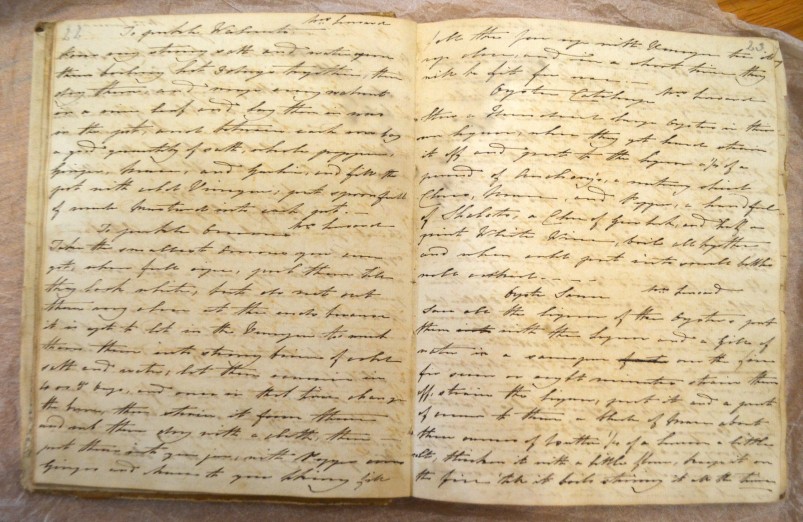 22
To pickle Walnuts
Mrs Leward
strong salt and water
them boiling hot together, then
dry them and wrap every walnut
in a vine leaf and lay them in rows
in the pot, and between each row lay
a good quantity of salt, whole pepper
Ginger, and Garlick, and fill the
pot with cold Vinegar, put a spoon full
of made Mustard into each pot.
To pickle Onions
Take the smallest Onions you can
get, when full ripe, peel them till
they look white, but do not cut
them very close at the ends because
it is apt to let in the Vinegar too much
throw them into strong brine of cold
salt and water, let them remain in
days, and once in that time change
the brine, then strain it from them
and rub them dry with a cloth, then
put them into your jars, with Pepper
Ginger and to your liking fill
23
up with Vinegar
up close, and in a short time they
will be fit for use
Oyster Catchup
large oysters in their
own liquor, when they get hard strain
it off and put to the liquor 1/2 of a
pound of Anchovies, a nutmeg sliced
Cloves, Mace, and Pepper, a hand full
of Shalots, a Clove of Garlick, and half a
pint White Wine, boil all together
and when cold put into small bottles
well corked.
Oyster Sauce
Save all the liquor of the Oysters, put
them with their liquor and a Gill of
water in a saucepan over the fire
for seven or eight minutes strain them
off, strain the liquor, put it and a pint
of cream to them a blade of Mace about
three ounces of butter, 1/2 of a lemon a little
salt thicken it with a little flour, keep it on
the fire till it boils stirring it all the time